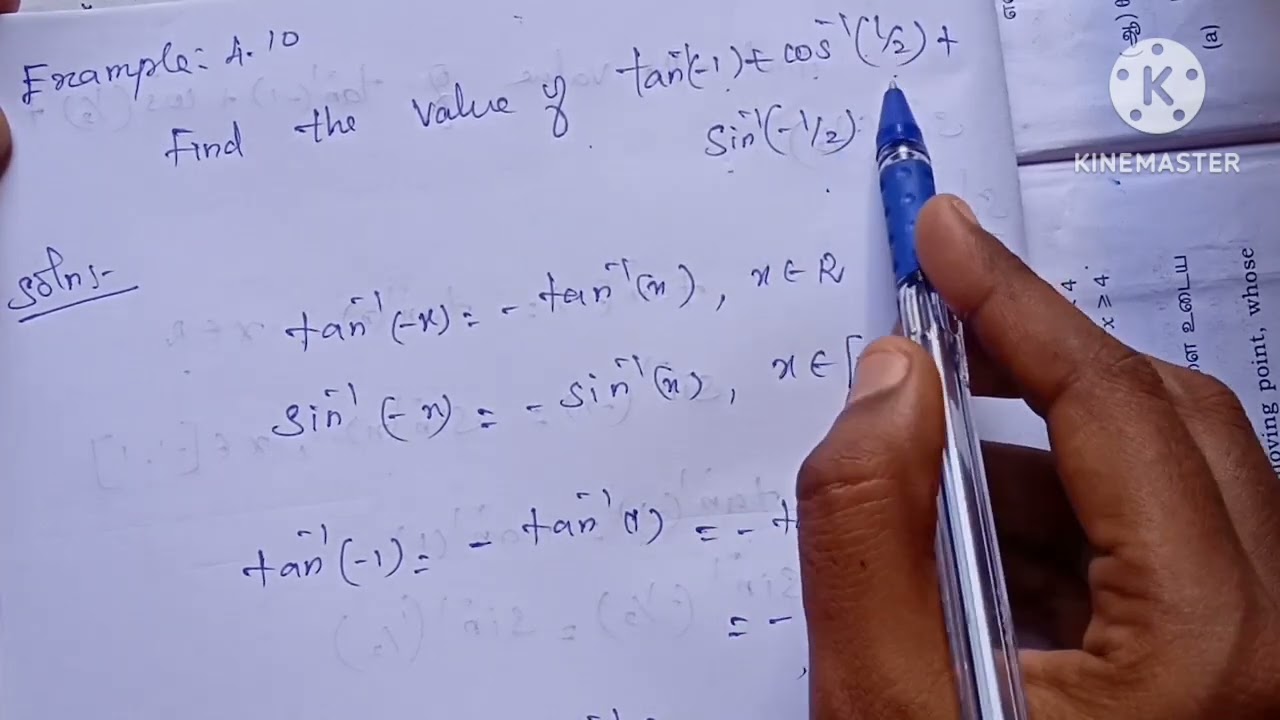 Example:- 4.10
Find the value of tan⁻¹(-1) + cos⁻¹(1/2) +
sin⁻¹(-1/2).
Soln:-
tan⁻¹(-x) = - tan⁻¹(x), x ∈ R
sin⁻¹(-x) = - sin⁻¹(x), x ∈ [
tan⁻¹(-1) = - tan⁻¹(1) = -
= -
KINEMASTER
(a)
x ≥ 4
உடைய
point, whose